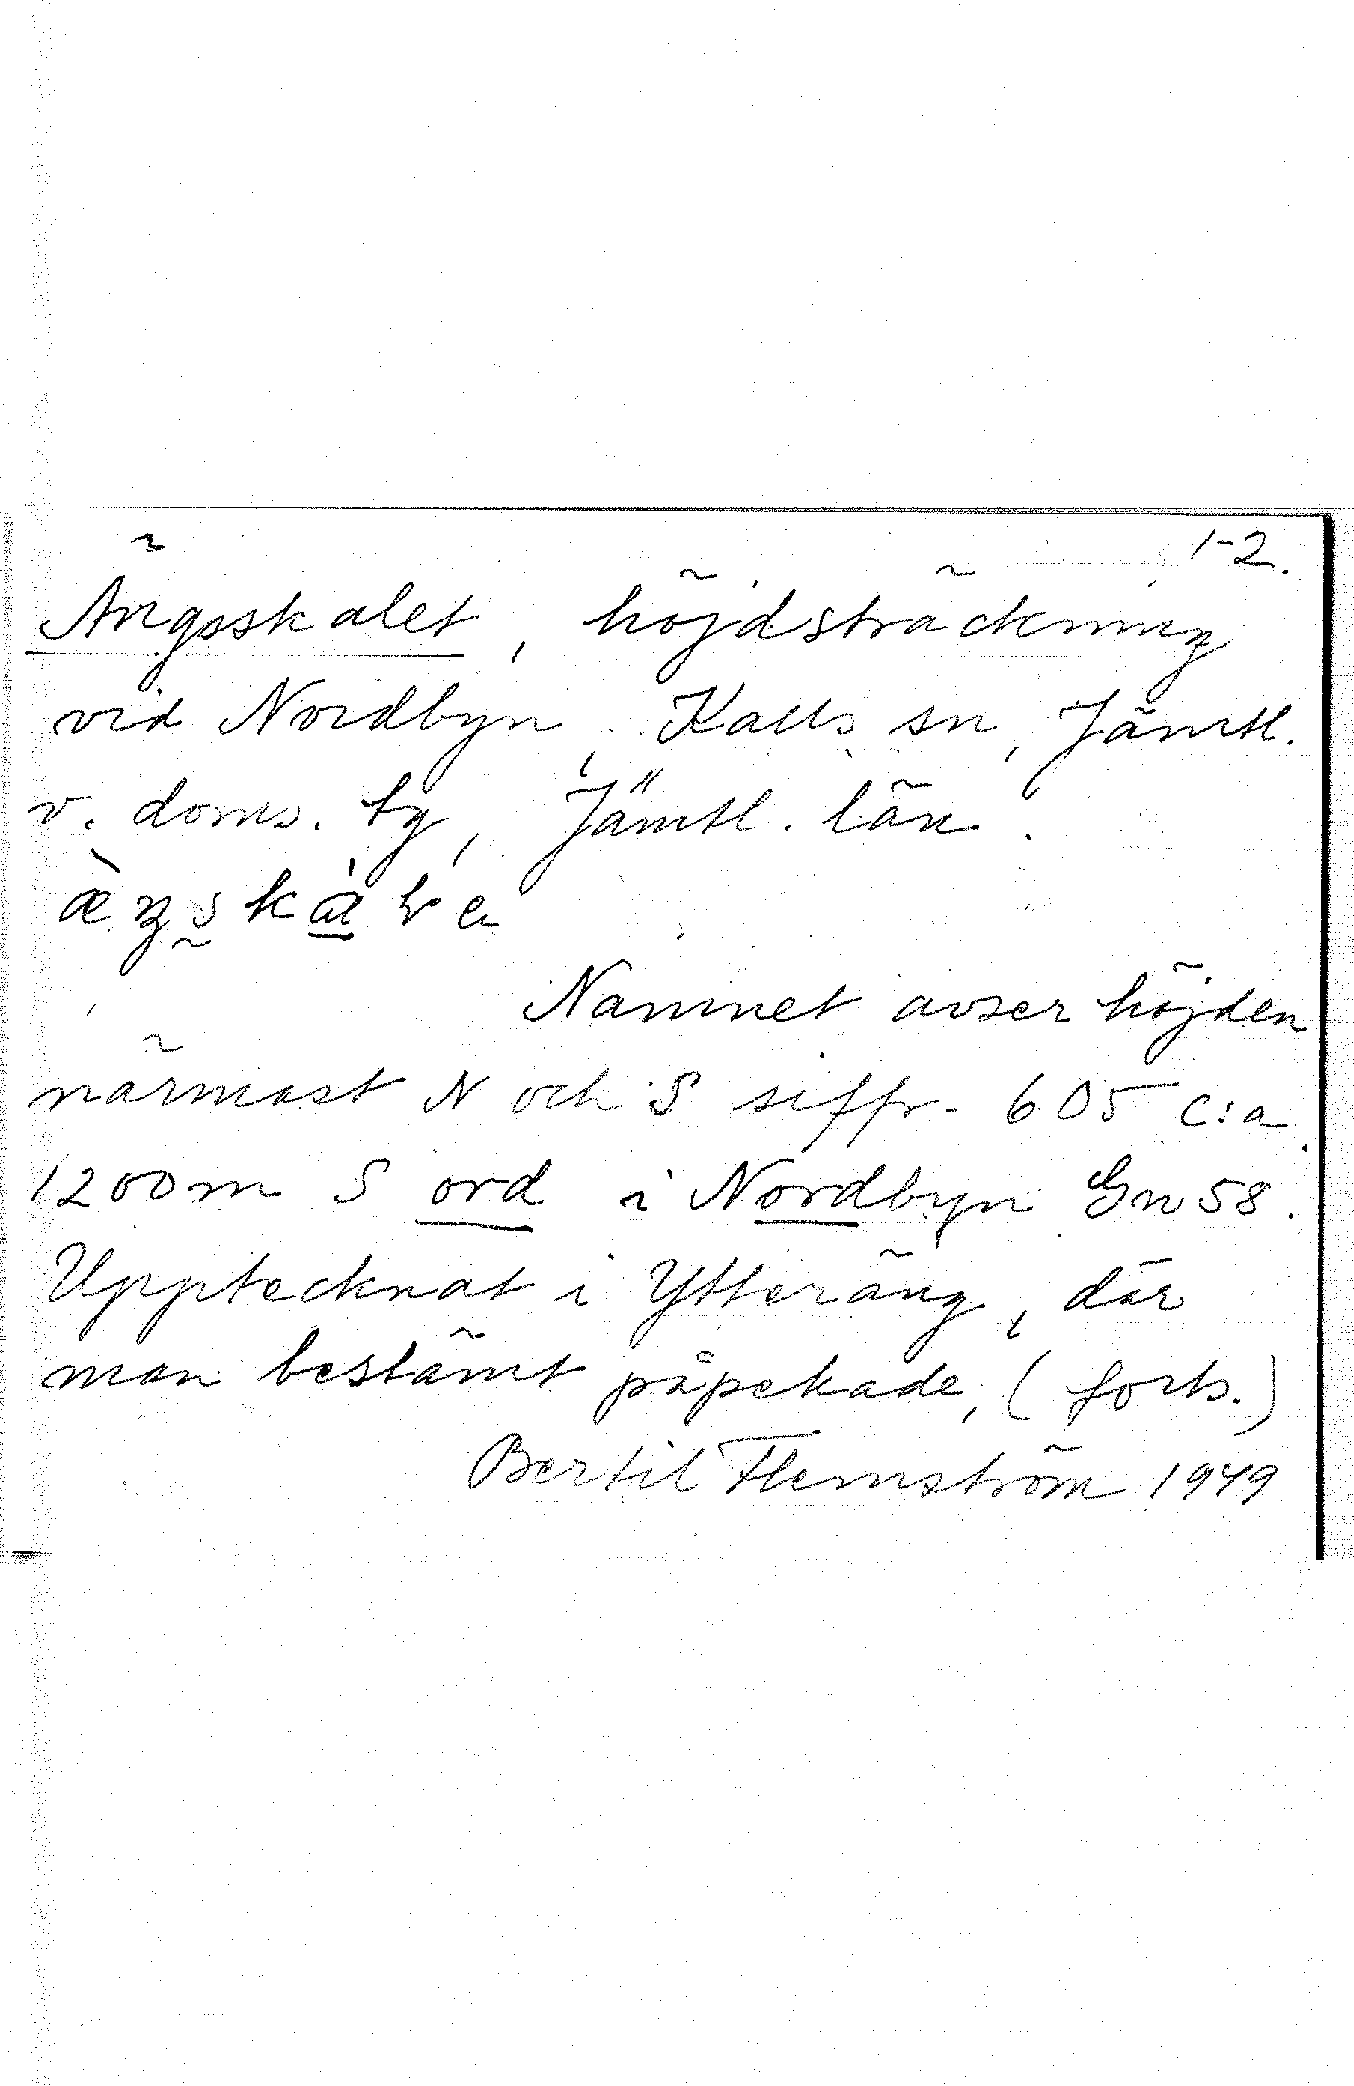 1-2.
Ängsskalet, höjdsträckning
vid Nordbyn, Kalls sn, Jämtl.
v. doms. tg, Jämtl. län.
Namnet avser höjden
närmast N och S siffr. 605 c:a
1200m S ord i Nordbyn Gn58.
Upptecknat i Ytteräng, där
man bestämt påpekade, (forts.)
Bertil Flemström 1949